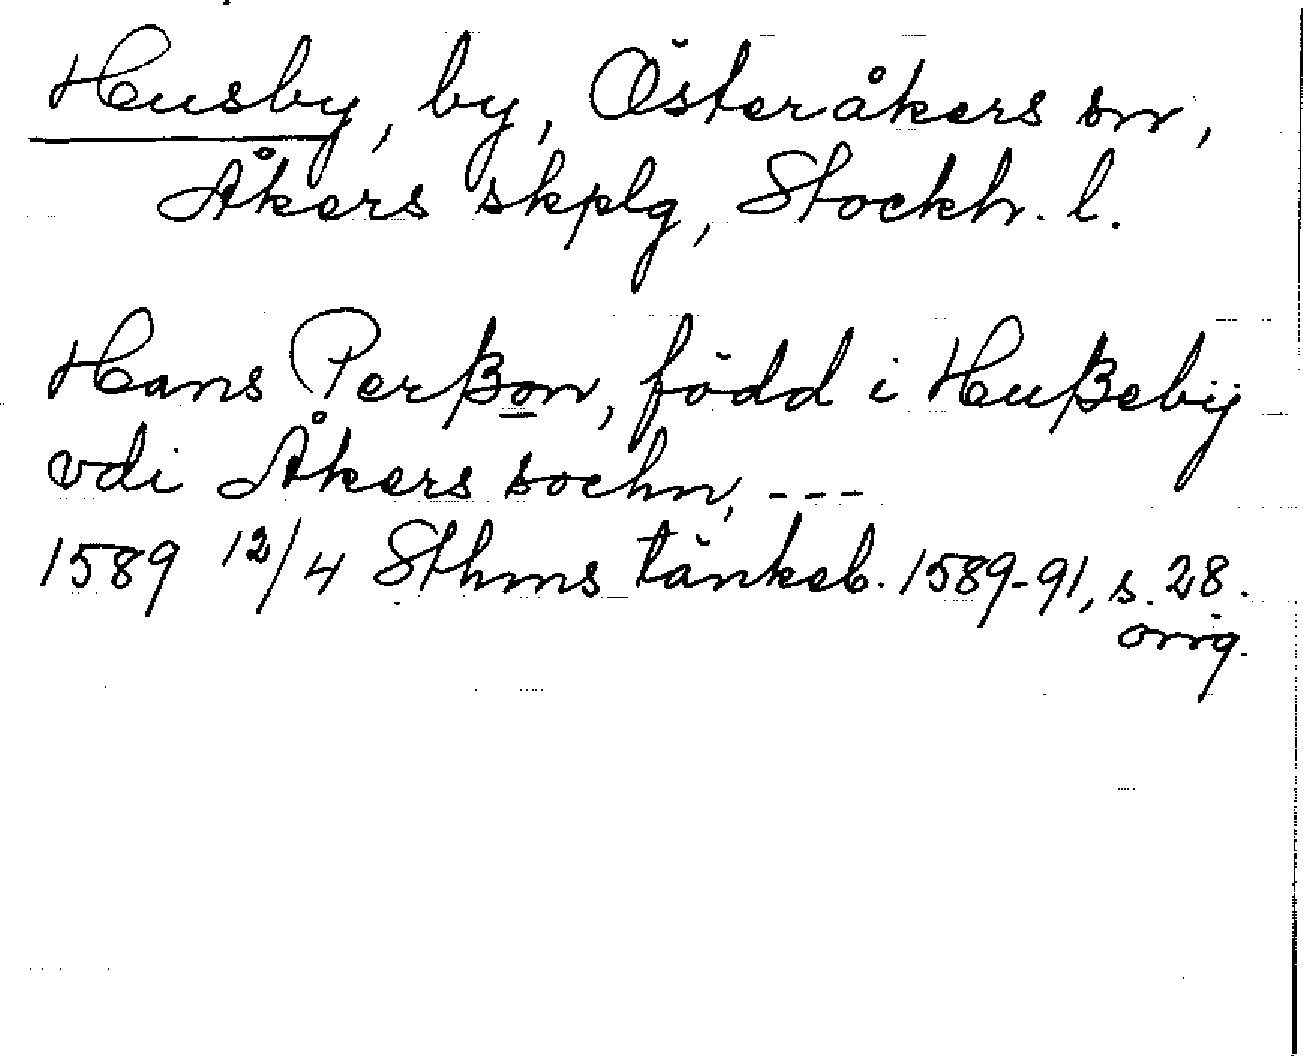 Husby, by, Österåkers sn,
Åkers skplg, Stockh. l.
Hans Perßon, född i Hußebÿ
vdi Åkers sochn, ---
1589 12/4 Sthms tänkeb. 1589-91, s. 28.
orig.